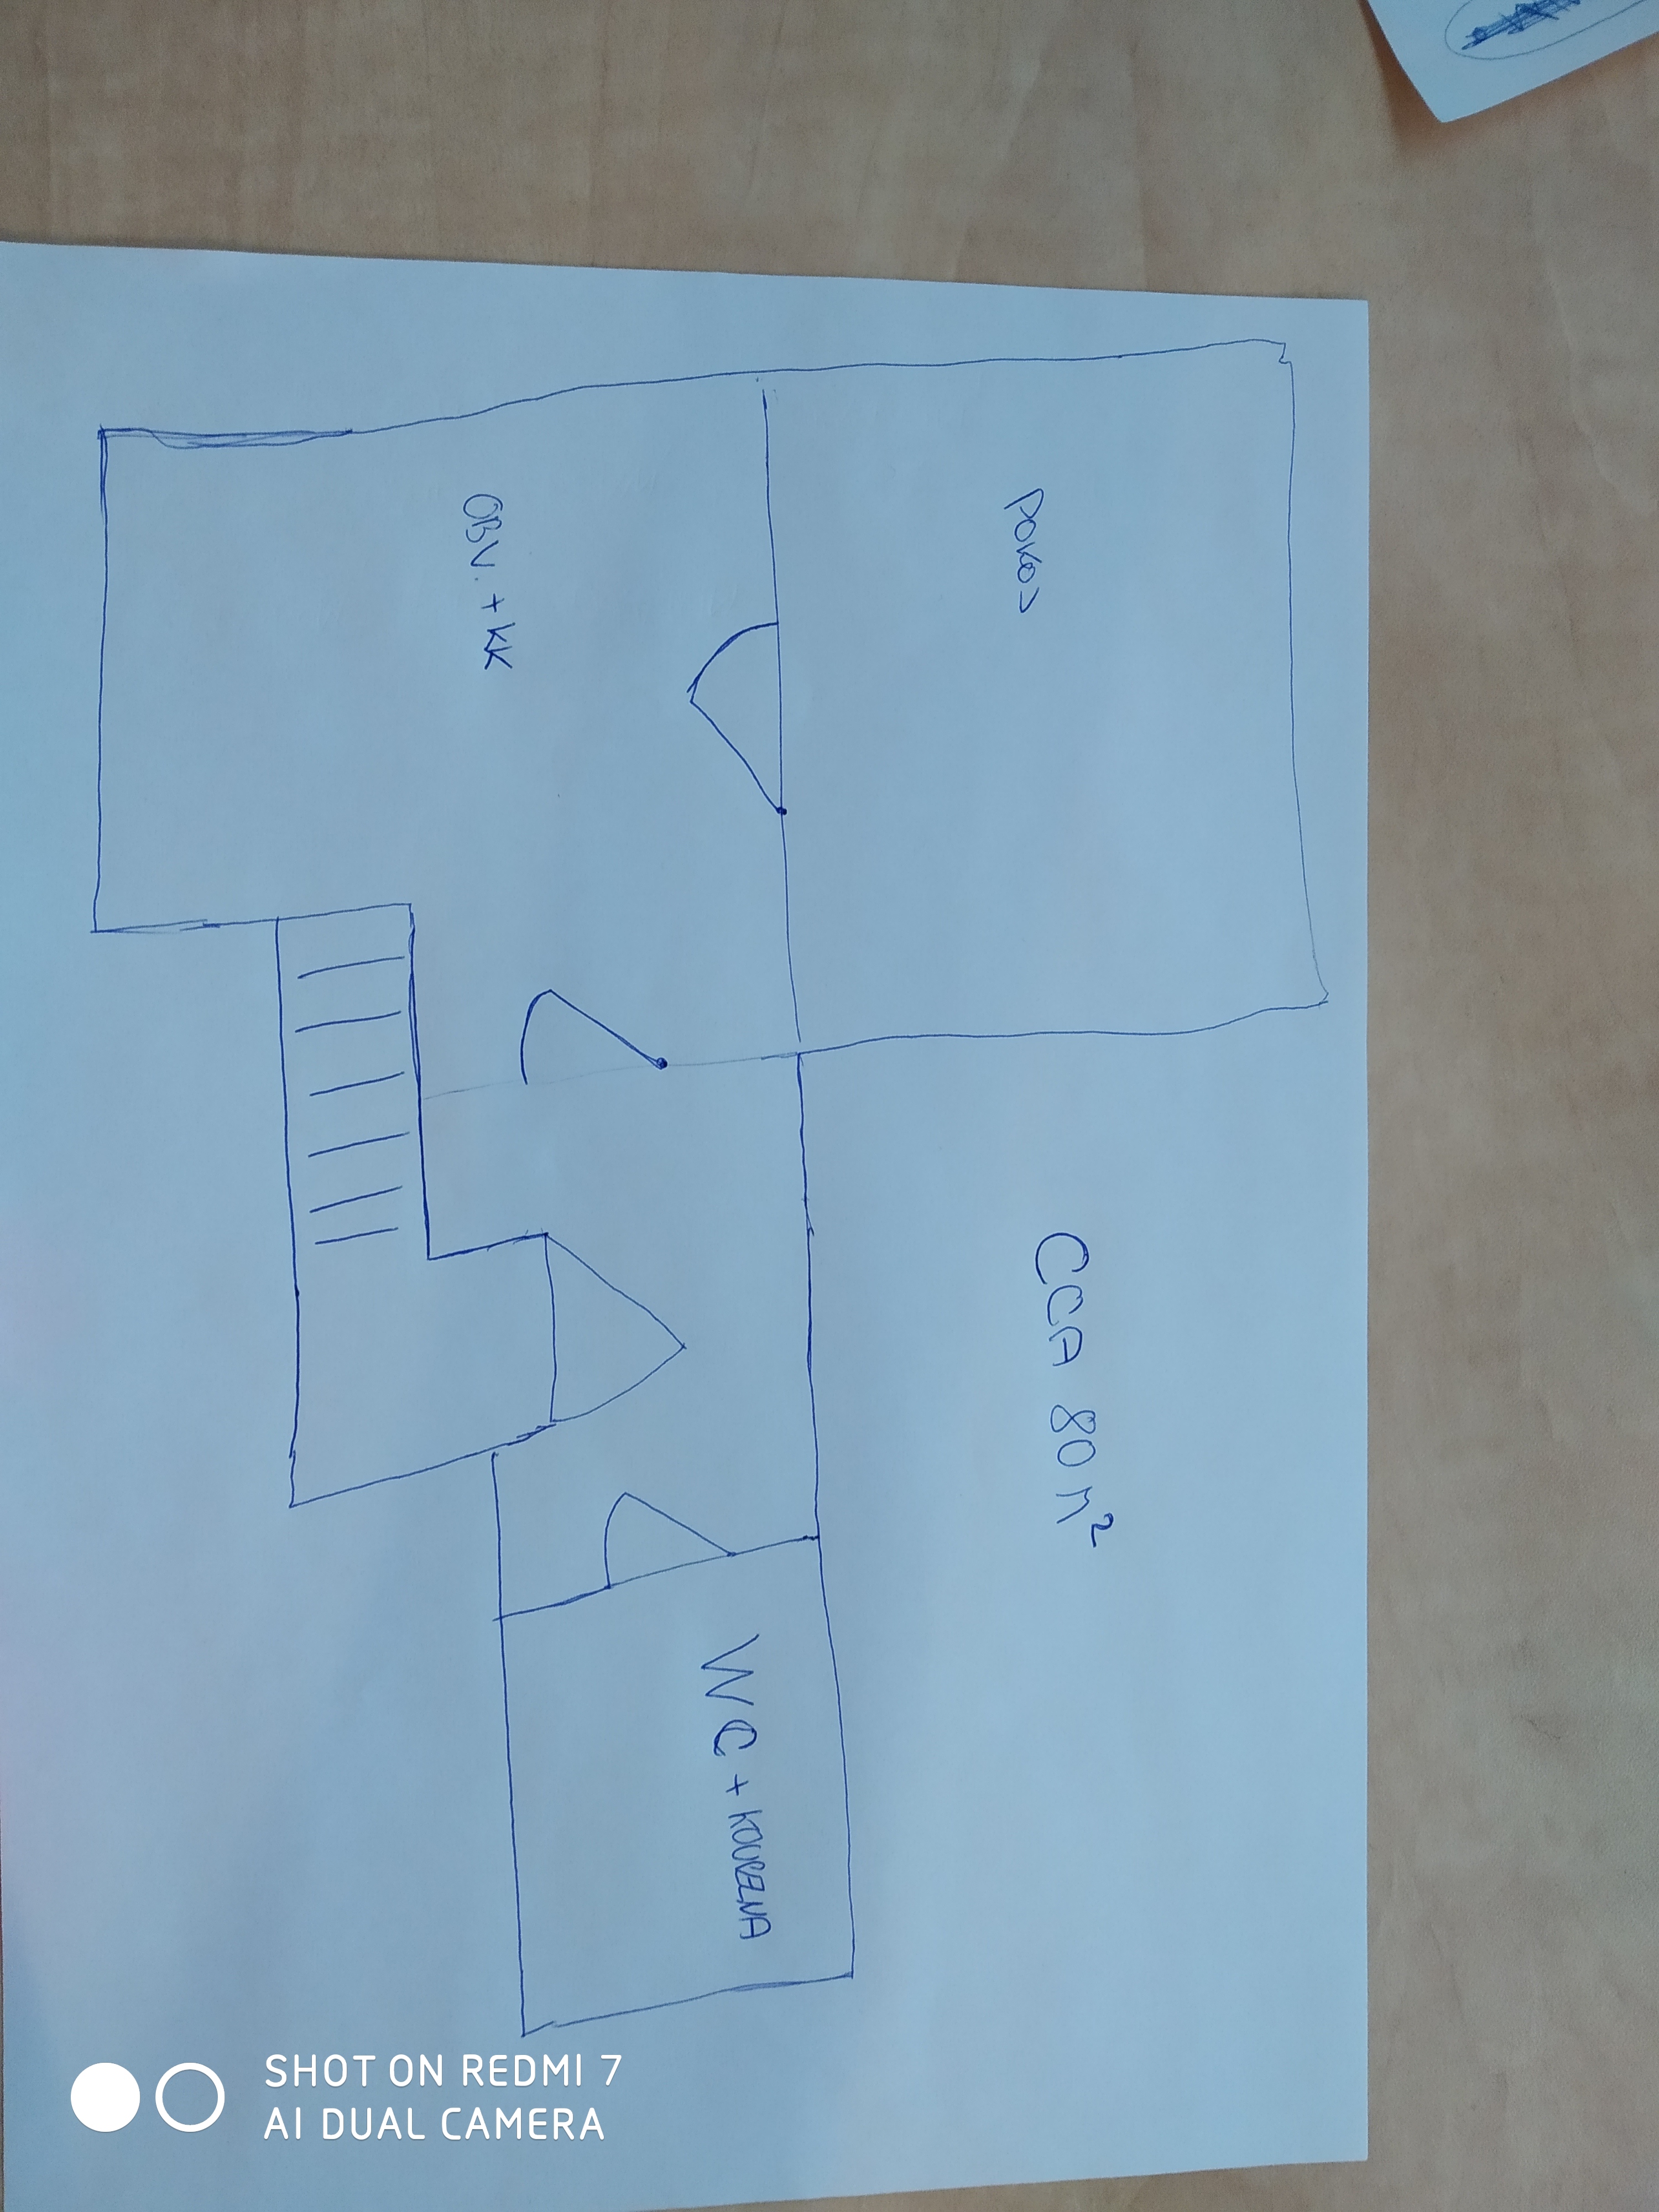 POKOJ
OBV. + KK
CCA 80 m²
WC + KOUPELNA
SHOT ON REDMI 7
AI DUAL CAMERA